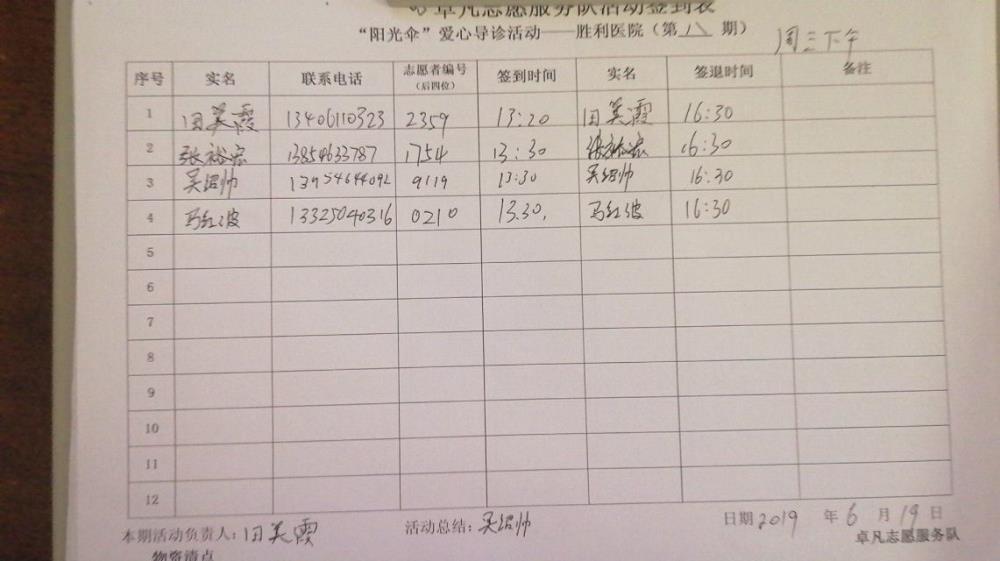 卓凡志愿服务队活动签到表
“阳光伞”爱心导诊活动——胜利医院（第 八 期）
周三下午
序号 实名 联系电话 志愿者编号（后四位） 签到时间 实名 签退时间 备注
1 田美霞 13406110323 2359 13:20 田美霞 16:30
2 张裕宏 13854633787 1754 13:30 张裕宏 16:30
3 吴绍帅 13954644092 9119 13:30 吴绍帅 16:30
4 马红波 13325040316 0210 13.30. 马红波 16:30
5
6
7
8
9
10
11
12
本期活动负责人：田美霞 活动总结：吴绍帅 日期 2019 年 6 月 19 日
卓凡志愿服务队
物资清点